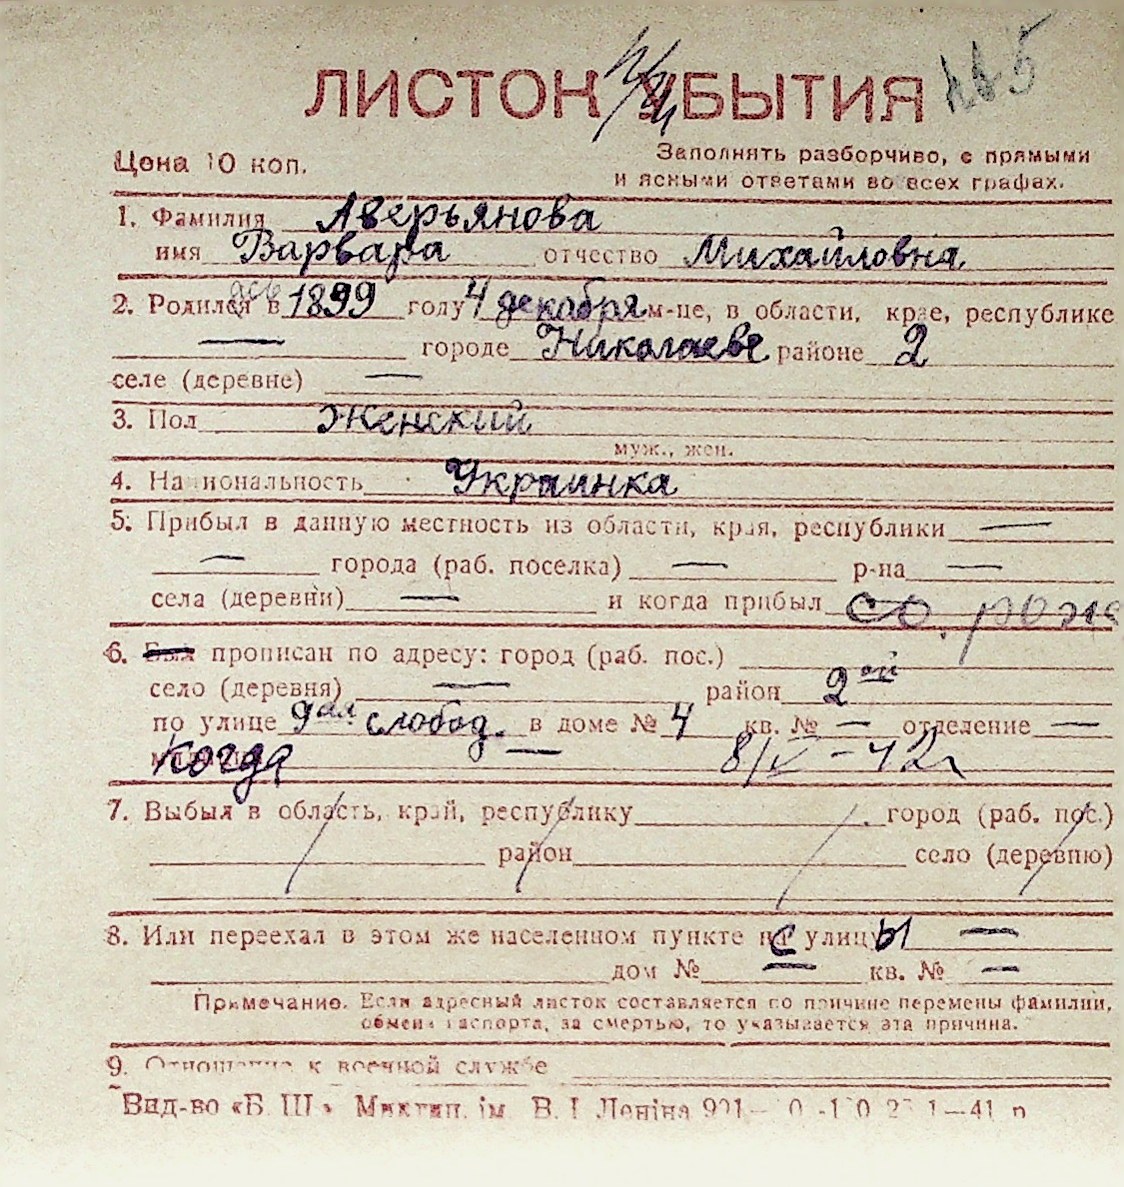 ЛИСТОК УБЫТИЯ кв 5
Цена 10 коп.
Заполнять разборчиво, с прямыми
и ясными ответами во всех графах.
1. Фамилия Аверьянова
имя Варвара отчество Михайловна
2. Родился в 1899 году 4 декабря м-це, в области, крае, республике
— городе Николаеве районе 2
селе (деревне) —
3. Пол женский
муж., жен.
4. Национальность Украинка
5. Прибыл в данную местность из области, края, республики —
— города (раб. поселка) — р-на —
села (деревни) — и когда прибыл со. рож
6. Был прописан по адресу: город (раб. пос.)
село (деревня) — район 2ой
по улице 9ая слобод. в доме № 4 кв. № — отделение —
когда — 8/IV-42г
7. Выбыл в область, край, республику город (раб. пос.)
район село (деревню)
8. Или переехал в этом же населенном пункте с улицы —
дом № — кв. № —
Примечание. Если адресный листок составляется по причине перемены фамилии,
обмена паспорта, за смертью, то указывается эта причина.
9. Отношение к военной службе
Вид-во «Б. Ш.» Миктип. ім. В. І. Леніна